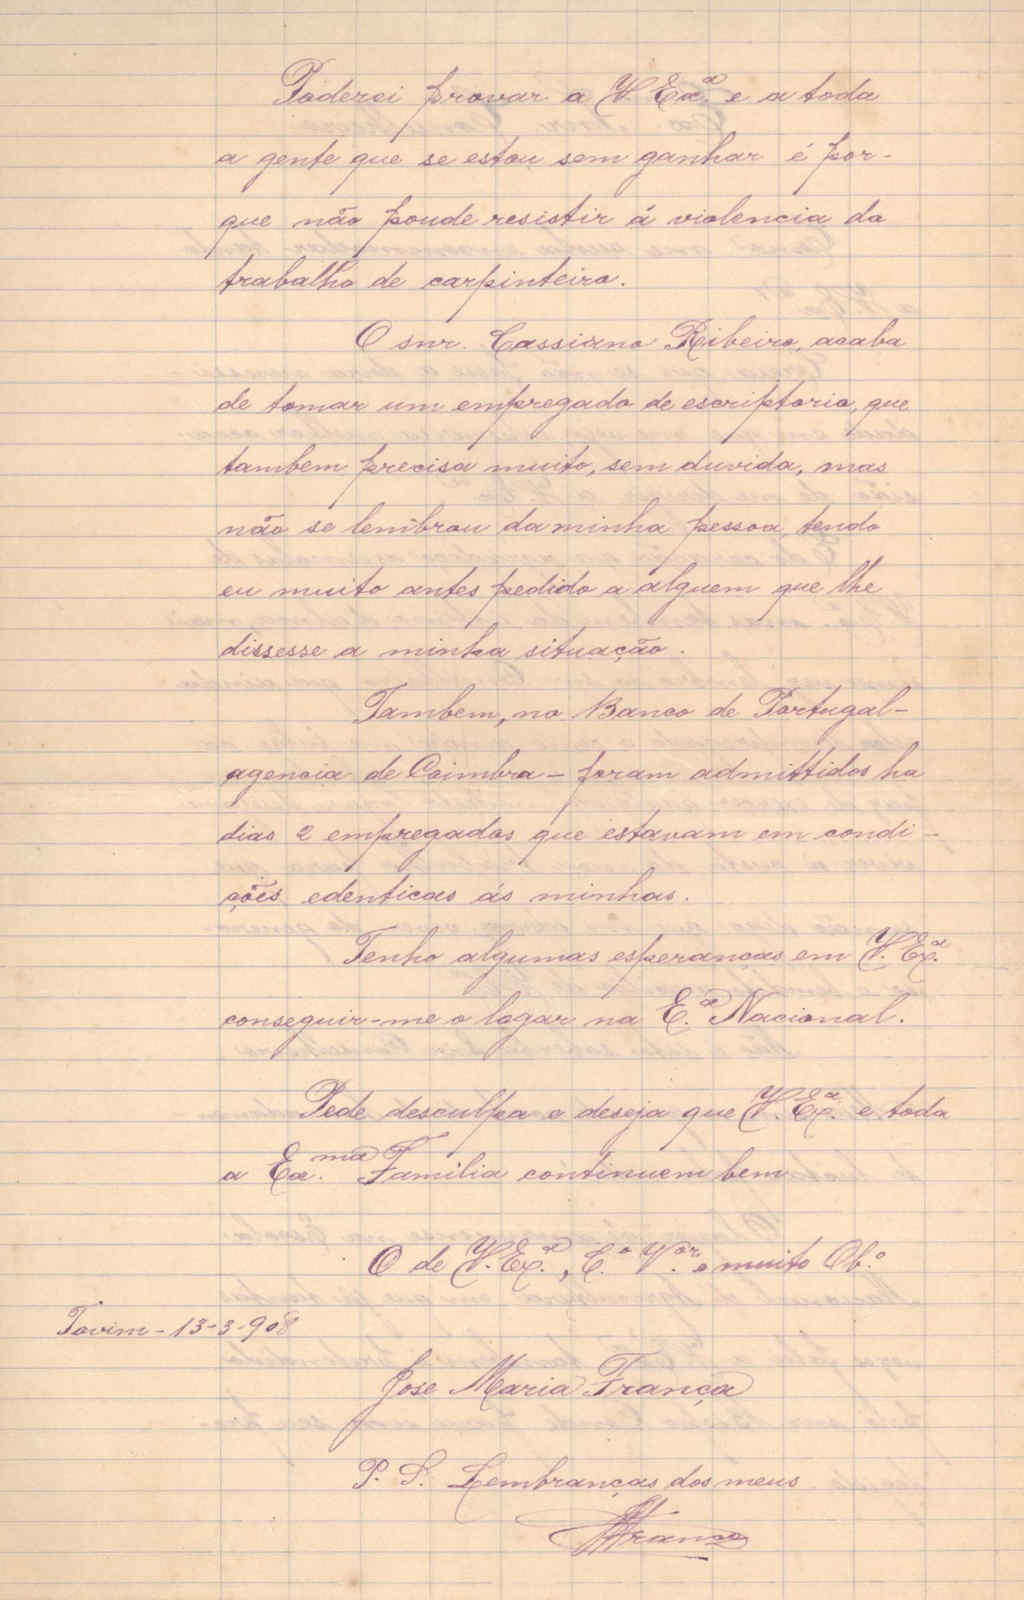 Poderei provar a V. Ex.ª e a toda
a gente que se estou sem ganhar é por-
que não poude resistir á violencia do
trabalho de carpinteiro.
O snr. Cassiano Ribeiro, acaba
de tomar um empregado de escriptorio, que
tambem precisa muito, sem duvida, mas
não se lembrou da minha pessoa, tendo
eu muito antes pedido a alguem que lhe
dissesse a minha situação.
Tambem, no Banco de Portugal-
agencia de Coimbra - foram admittidos ha
dias 2 empregados que estavam em condi-
ções edenticas ás minhas.
Tenho algumas esperanças em V. Ex.ª
conseguir-me o logar na E.ª Nacional.
Pede desculpa e deseja que V. Ex.ª e toda
a Ex.ma Familia continuem bem
O de V. Ex.ª, C.º V.or e muito Ob.º
Tovim - 13-3-908
Jose Maria França
P. S. Lembranças dos meus
França